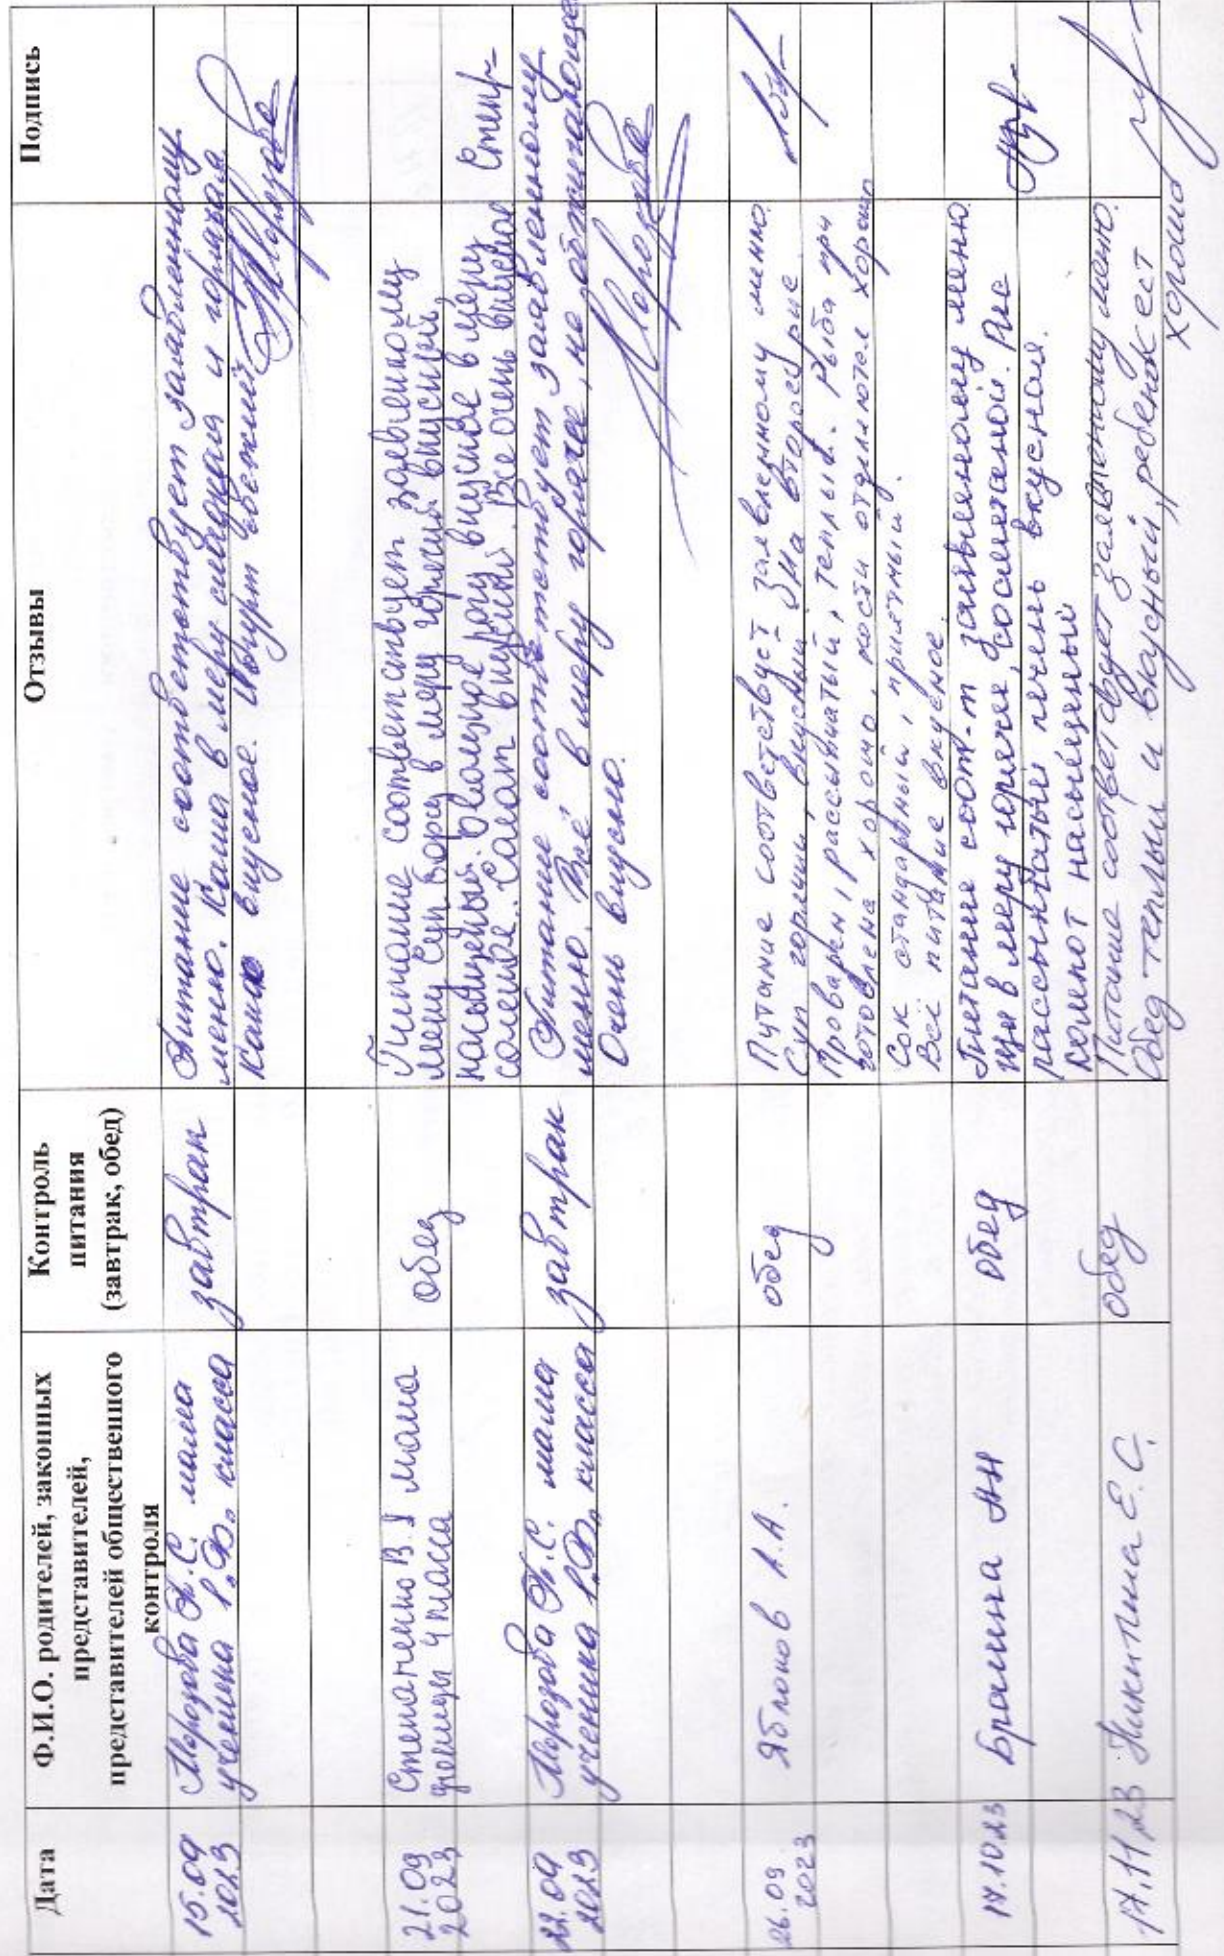 Дата
Ф.И.О. родителей, законных
представителей,
представителей общественного
контроля
Контроль
питания
(завтрак, обед)
Отзывы
Подпись
15.09
2023
Морозова С. мама
ученика 1 класса
завтрак
Питание соответствует заявленному
меню. Каша в меру сладкая и горячая
какао вкусное. Йогурт свежий
21.09
2023
Степаненко В. мама
4 класса
обед
Питание соответствует заявленному
меню Суп борщ в меру горячий вкусный,
насыщенный. рагу вкусное в меру
соленое. Салат вкусный. Все очень вкусное
22.09
2023
Морозова С. мама
ученика 1 класса
завтрак
Питание соответствует заявленному
меню. Всё в меру горячее, не обжигающее
Очень вкусно.
26.09
2023
Яблоков А.А.
обед
Питание соответствует заявленному меню.
Суп горячий, вкусный. На второе рис
Проварен, рассыпчатый, теплый. Рыба при
готовлена хорошо, кости отделяются хорошо
Сок стандартный, приятный.
Всё питание вкусное.
17.10.23
Брагина АН
обед
Питание соот-т заявленному меню.
Щи в меру горячие, со сметаной. Рис
рассыпчатый печень вкусная.
компот насыщенный
17.11.23
Никитина Е.С.
обед
Питание соответствует заявленному меню.
Обед теплый и вкусный, ребенок ест
хорошо